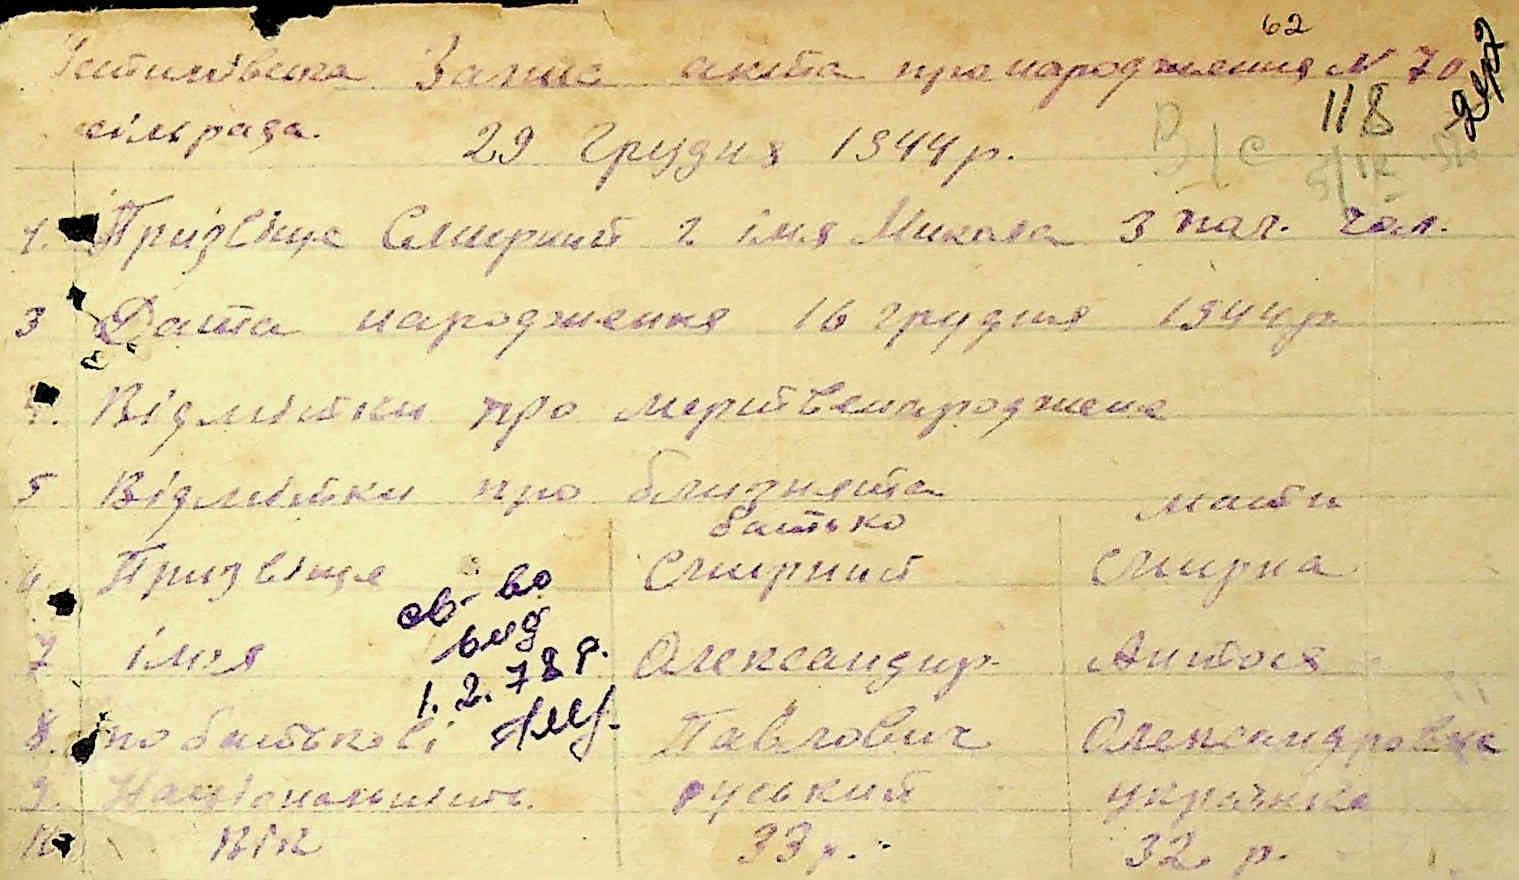 62
Устимівська Запис акта про народження N 70
сільрада.
118
29 Грудня 1944 р.
В/С
1. Призвіще Смирний 2 імя Микола 3 пол. чол.
3 Дата народження 16 грудня 1944 р
4. Відмітки про мертвенароджене
5 Відмітки про близнята
батько мати
6 Призвіще Смирний Смирна
св-во
вид
7 імя Олександр Антося
1. 2. 78 р.
8. по батькові Павлович Олександровна
9. Національність руський українка
10 Вік 33 р. 32 р.